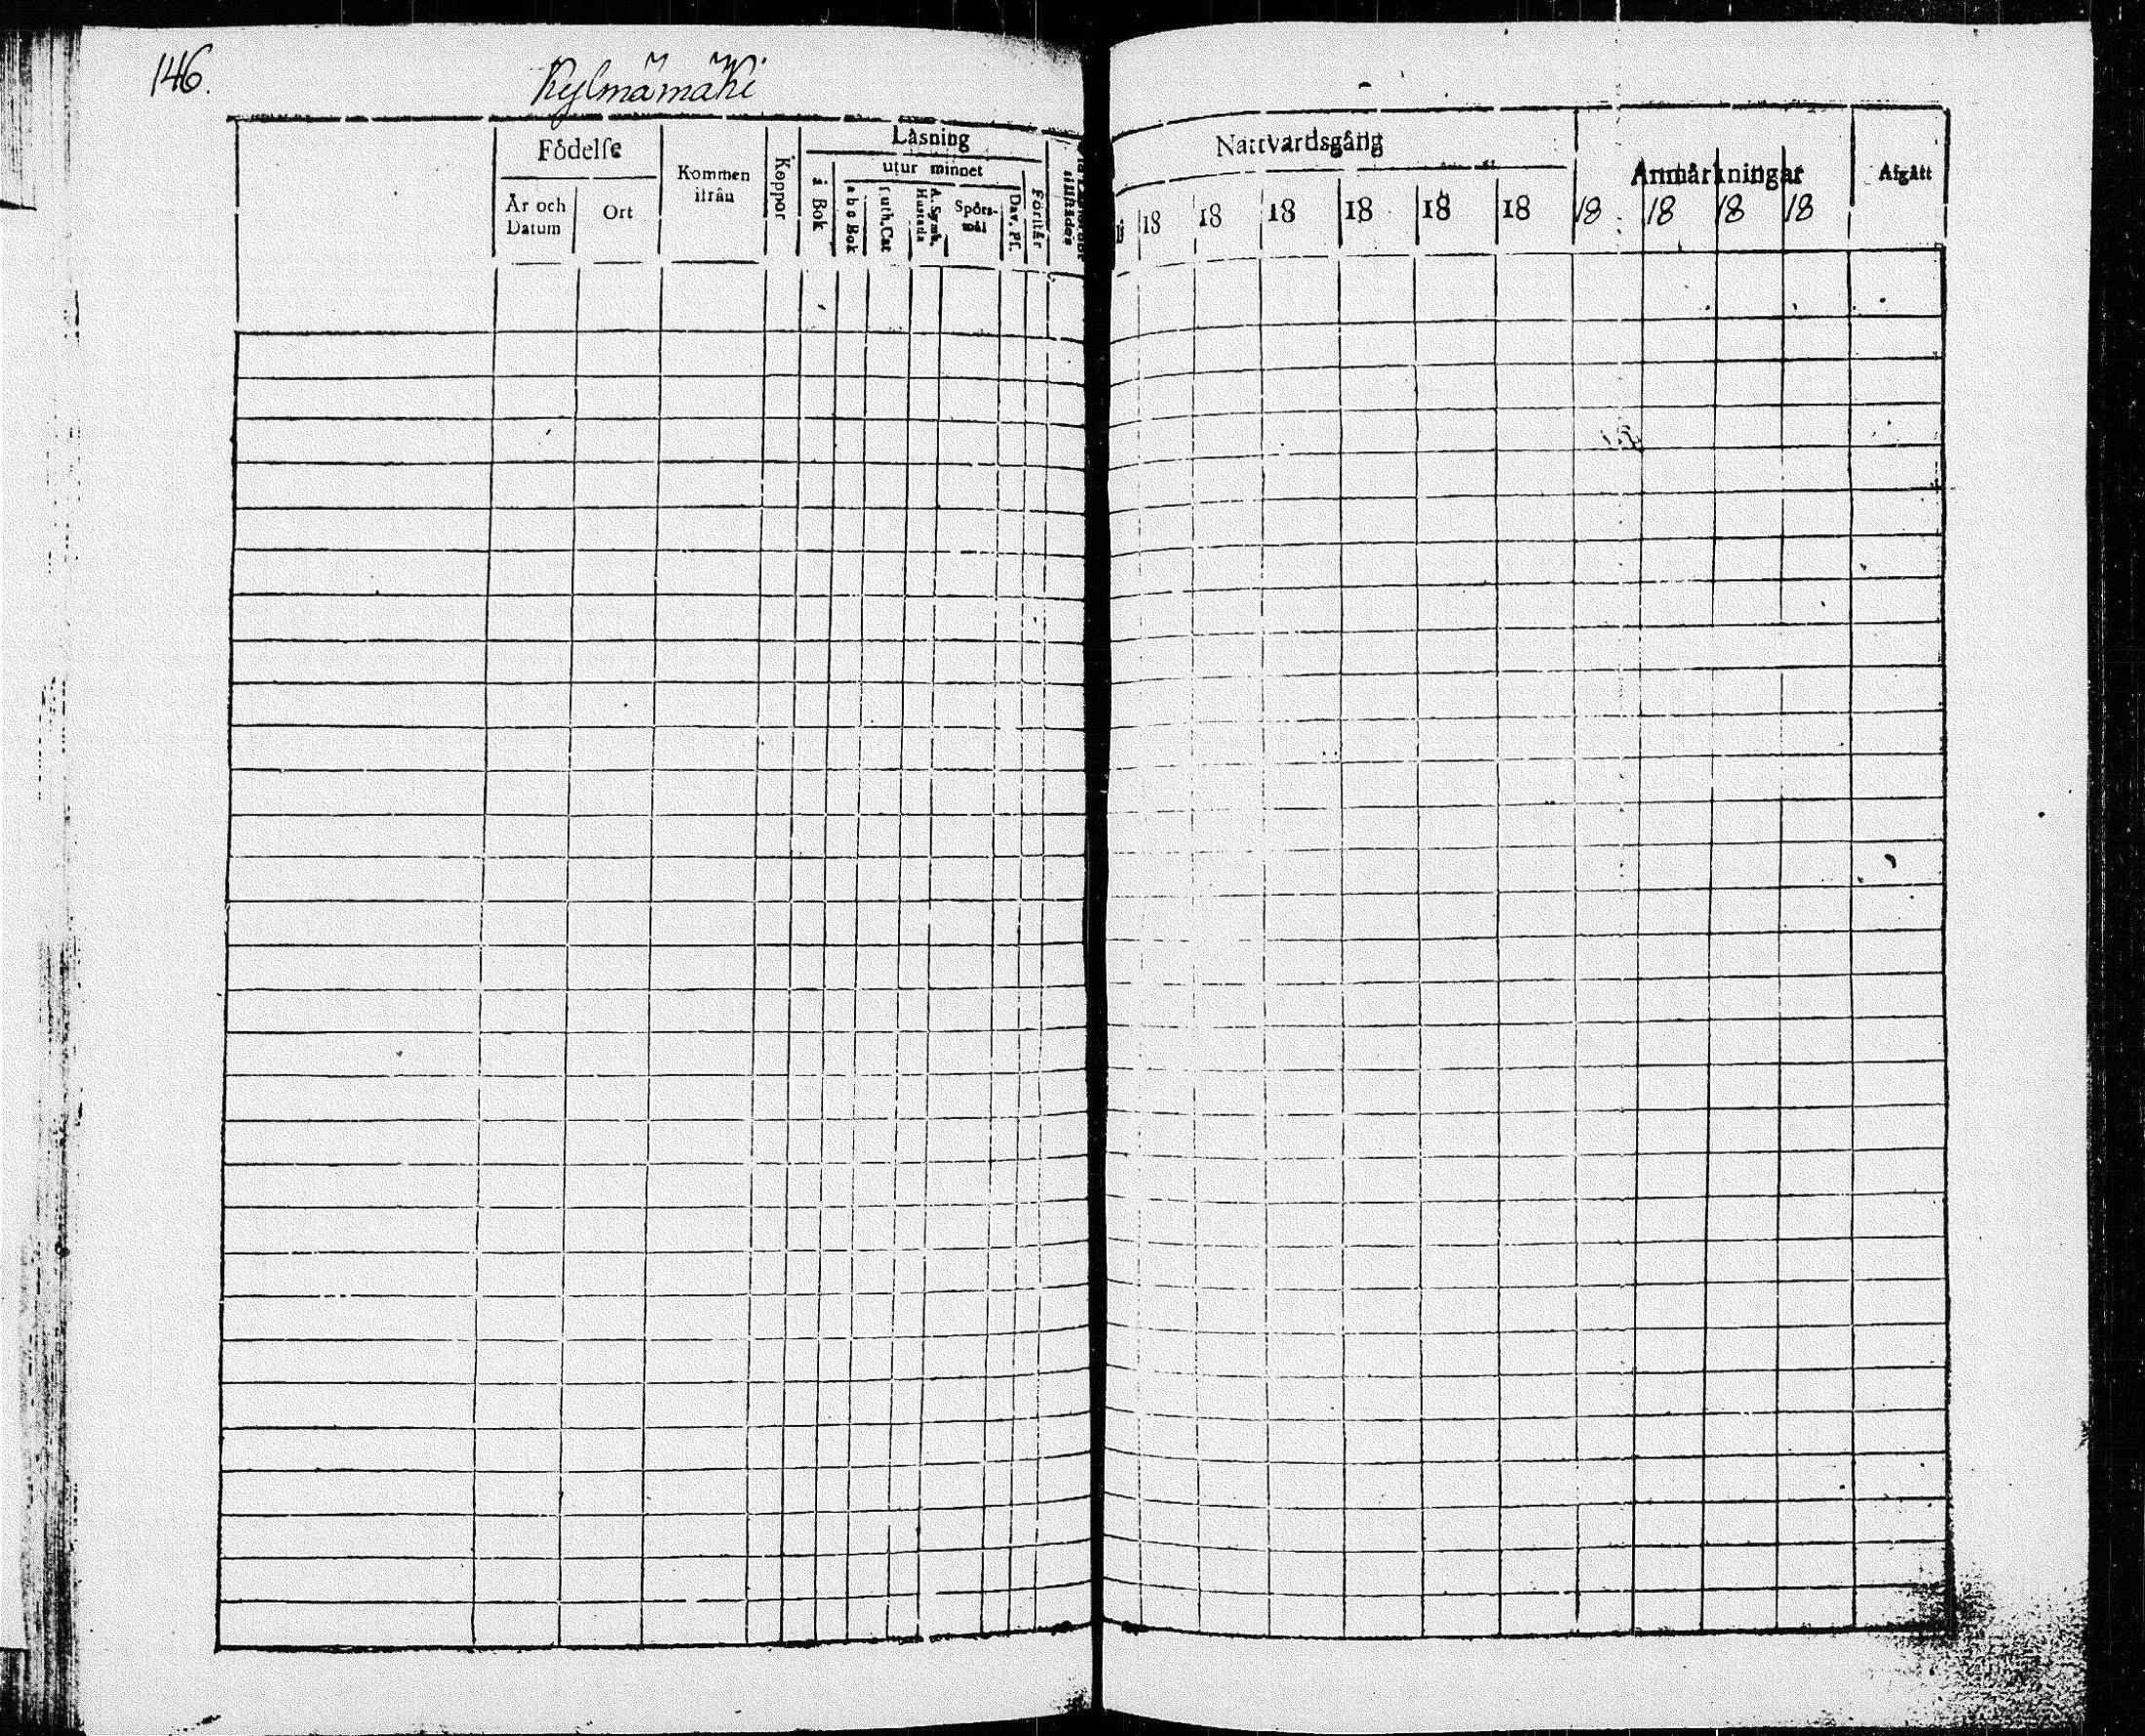 146.
Kylmämäki
Födelſe
År och Datum
Ort
Kommen ifrån
Koppor
Låsning
i Bok
utur minnet
a b c Bok
Luth. Cat
A. Symb.
Huſtafla
Spörs-mål
Dav. Pſ.
Förſtår
Nattvardsgång
18 18 18 18 18 18
Anmårkningar
18 18 18 18
Afgått